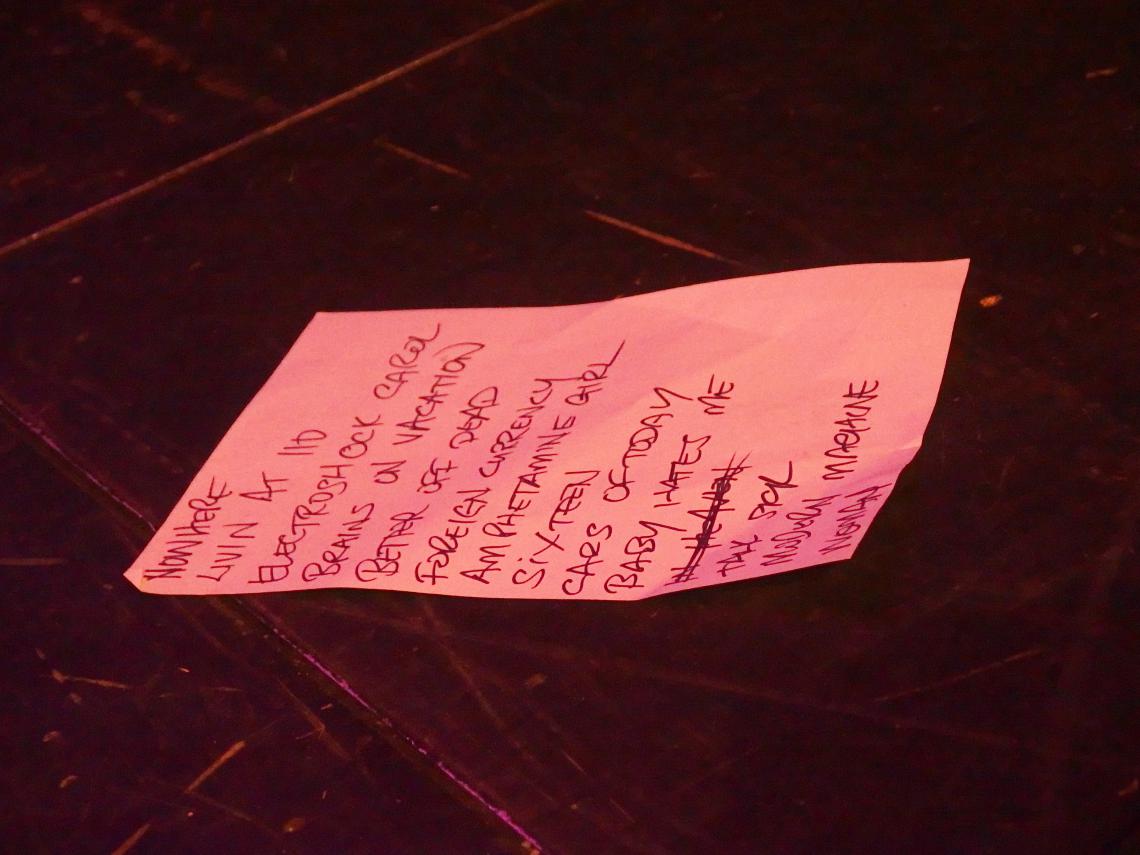 NOWHERE
LIVIN AT 110
ELECTROSHOCK CAROL
BRAINS ON VACATION
BETTER OFF DEAD
FOREIGN CURRENCY
AMPHETAMINE GIRL
SIXTEEN
CARS OF TODAY
BABY HATES ME
TAX
MODERN
MACHINE